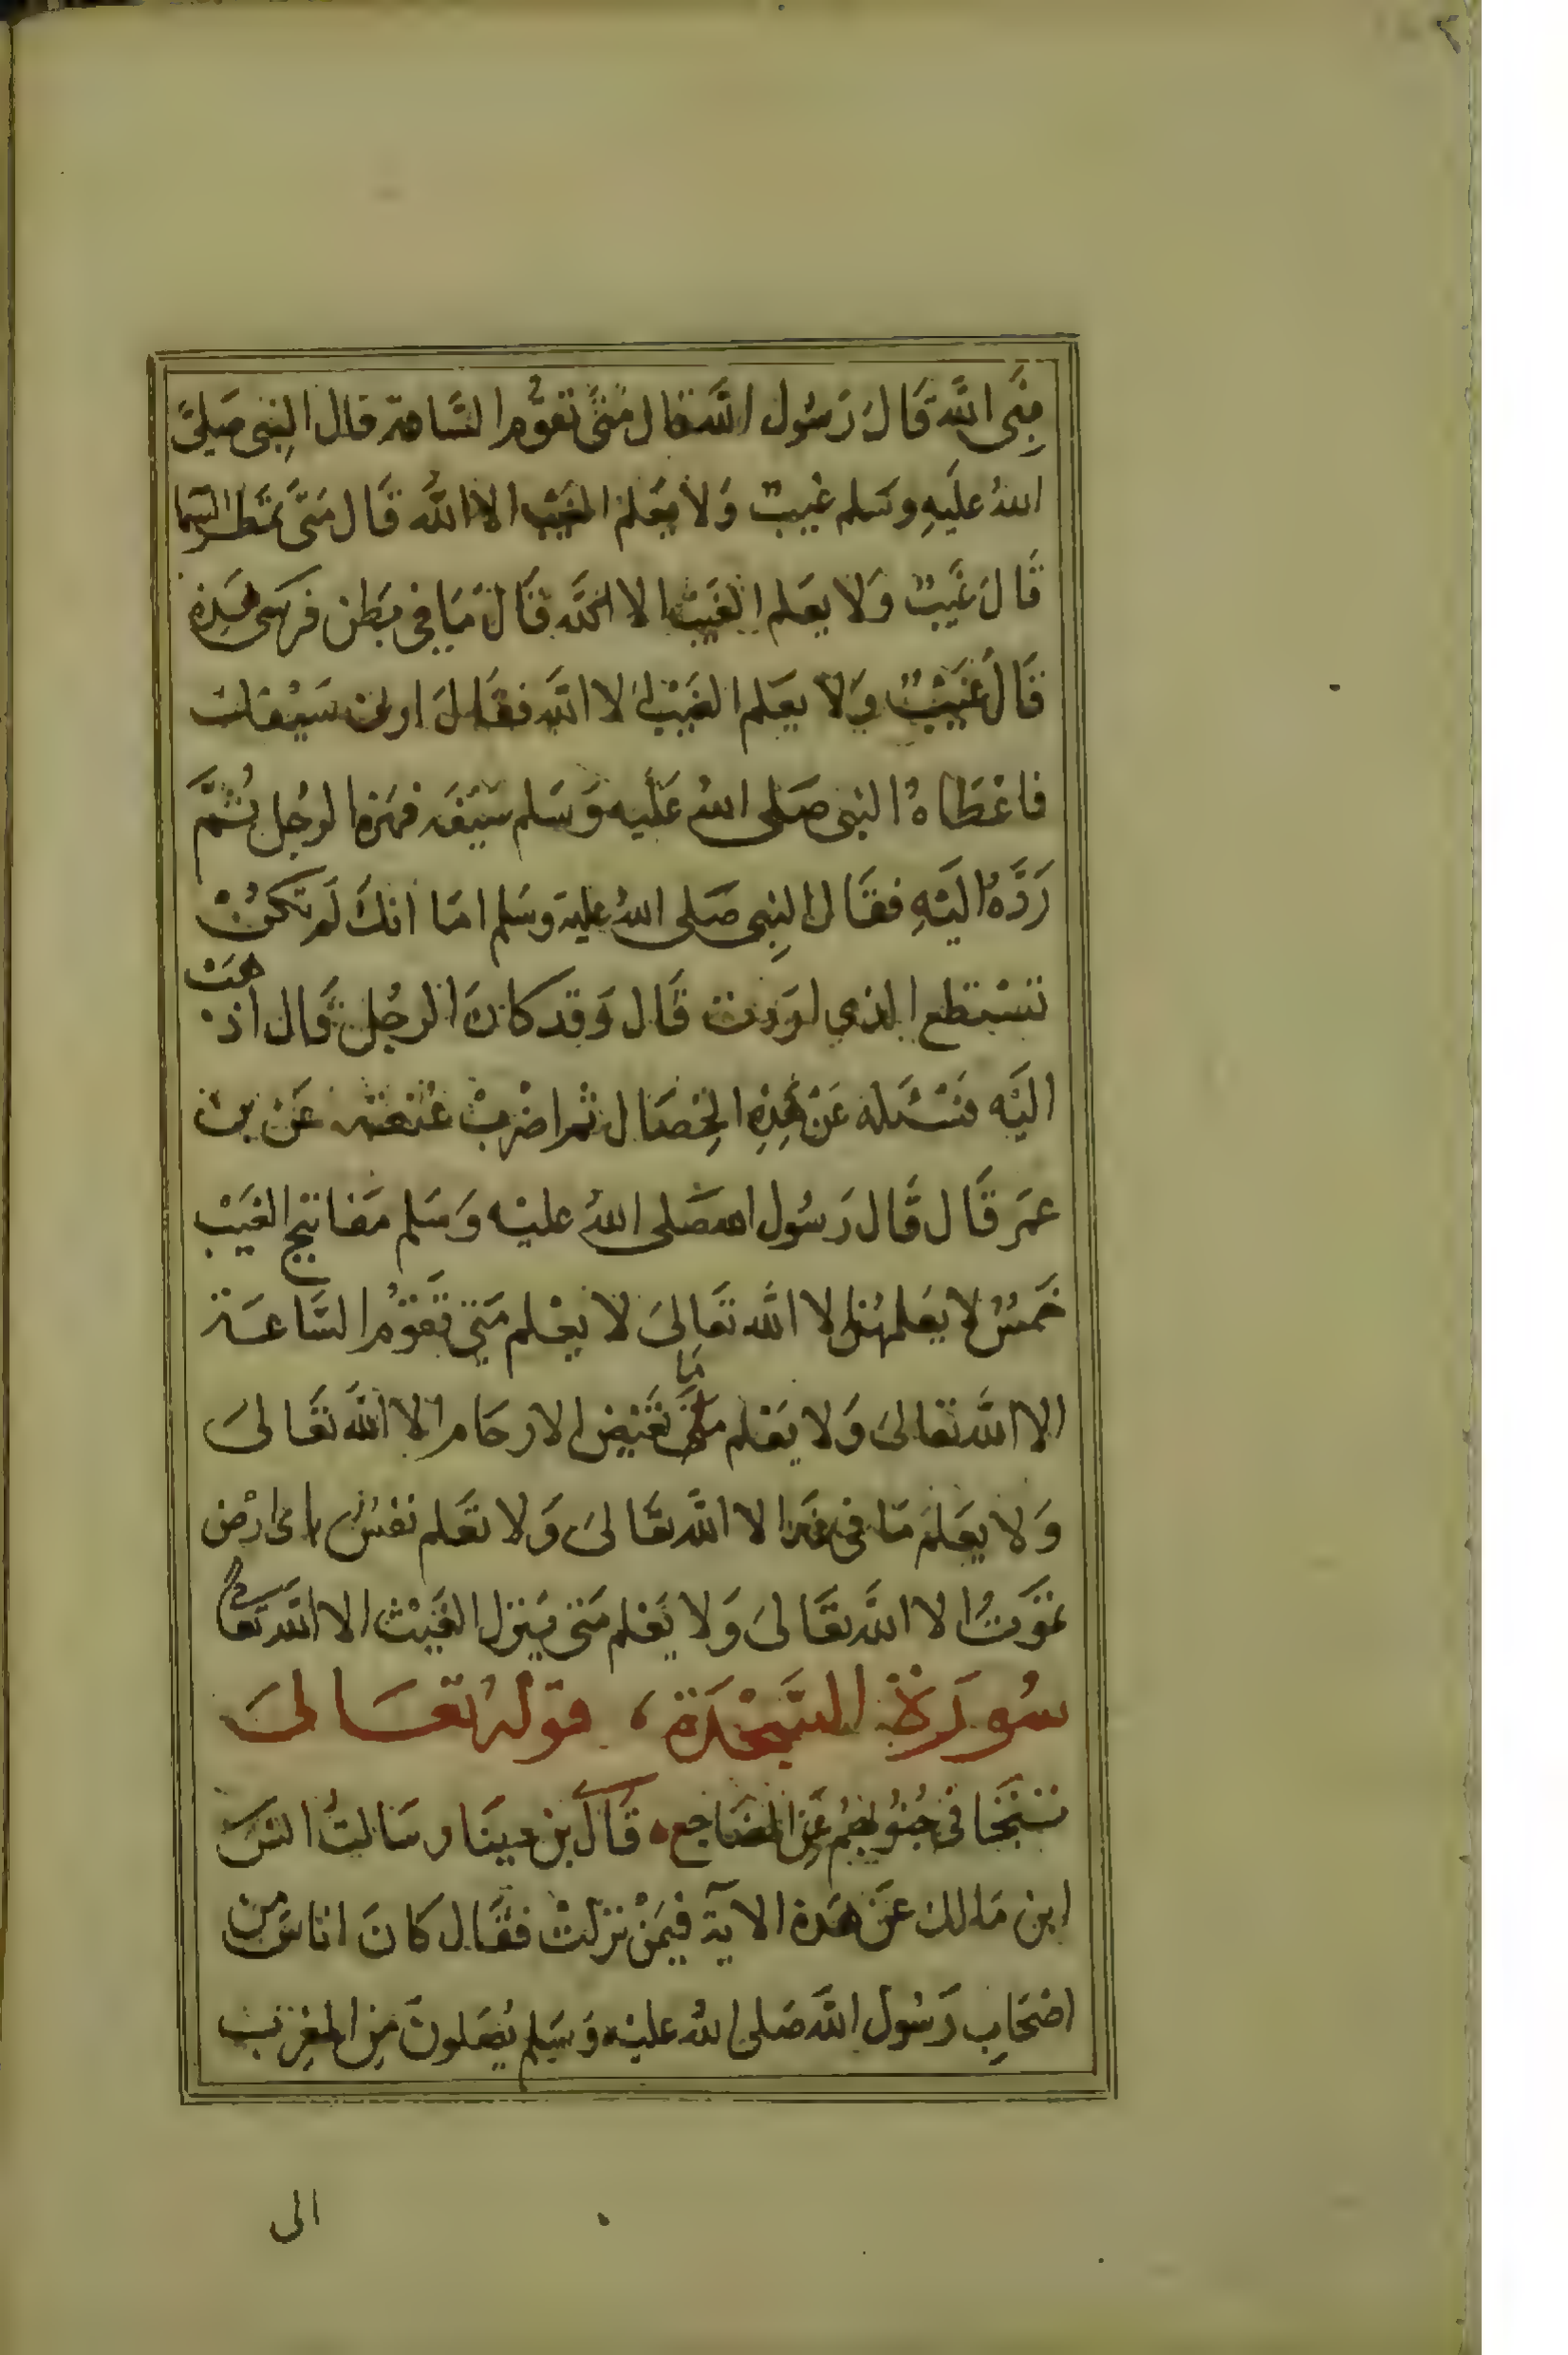 نبي الله قال رسول الله قال متى تقوم الساعة قال النبي صلى
الله عليه وسلم غيب ولا يعلم الغيب الا الله قال متى تمطر السما
قال غيب ولا يعلم الغيب الا الله قال ما في بطن فرسى هذه
قال غيب ولا يعلم الغيب الا الله فقال ارنى سيفك
فاعطاه النبي صلى الله عليه وسلم سيفه فهزه الرجل ثم
رده اليه فقال النبي صلى الله عليه وسلم اما انك لم تكن
تستطع الذي اردت قال وقد كان الرجل قال اذهب
اليه فسئله عن هذه الخصال ثم اضرب عنقه عن بن
عمر قال قال رسول الله صلى الله عليه وسلم مفاتيح الغيب
خمس لا يعلمهن الا الله تعالى لا يعلم متى تقوم الساعة
الا الله تعالى ولا يعلم ما تغيض الارحام الا الله تعالى
ولا يعلم ما في غد الا الله تعالى ولا تعلم نفس باى ارض
تموت الا الله تعالى ولا يعلم متى ينزل الغيث الا الله تعالى
سورة السجدة، قوله تعالى
تتجافى جنوبهم عن المضاجع قال بن دينار سالت انس
ابن مالك عن هذه الاية فيمن نزلت فقال كان اناس من
اصحاب رسول الله صلى الله عليه وسلم يصلون من المغرب
الى